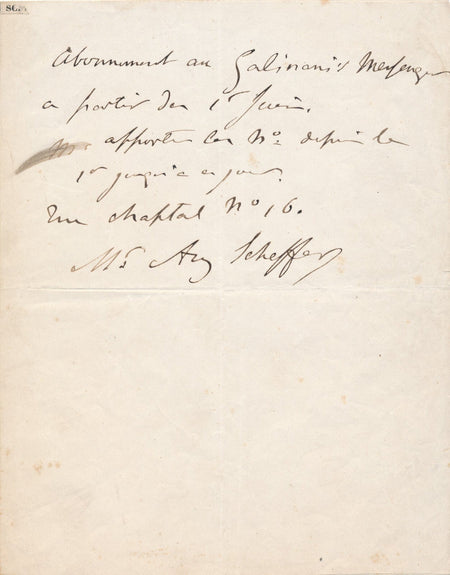 SC.
Abonnement au Galinani's Messenger
a partir du 1r Juin.
apporter les No depuis le
1er jusqu'a ce jour.
Rue chaptal No 16.
Mr Ary Scheffer